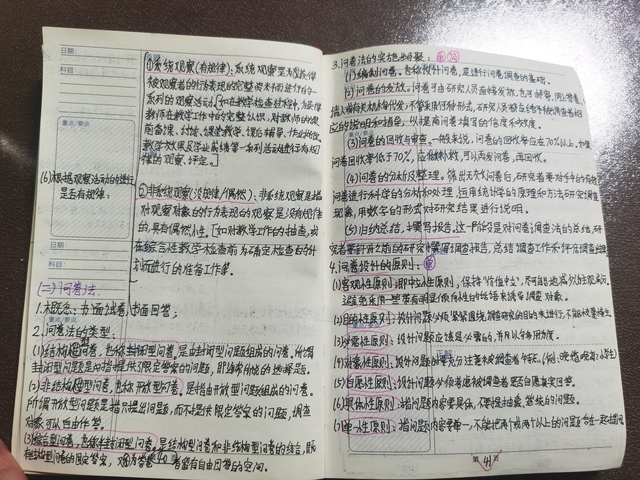 日期：
科目：
重点/要点
(6)根据观察活动的进行是否有规律：
①系统观察(有规律)：系统观察里为及取得
被观察者的行为表现的完整资料而进行的一
系列的观察活动。[如在教学检查过程中，为获得
教师在教学工作中的完整认识，对教师的课
前备课、讲授、课堂教学、课后辅导、作业批改、
教学效果及学业成绩等一系列活动进行有规
律的观察、评定。]
②非系统观察(没规律/偶然)：非系统观察是指
对观察对象的行为表现的观察是没有规律
的，具有偶然性。[如对教学工作的抽查，或
在综合性教学检查前为确定检查目的计
划而进行的准备工作。
日期：
科目：
(三)问卷法
1.概念：书面试卷，书面回答；
重点/要点
2.问卷法的类型：
(1)结构型问卷，也称封闭型问卷，是由封闭型问题组成的问卷。所谓
封闭型问题是如指提供了限定答案的问题，即通常所做的选择题。
(2)非结构型问卷，也称开放型问卷。是指由开放型问题组成的问卷。
所谓开放型问题是指只提出问题，而不提供限定答案的问题，调查
对象可以自由作答。
(3)综合型问卷，也称半封闭型问卷，是结构型问卷和非结构型问卷的结合，既
有结构型问卷的固定答案，又留有自由回答的空间。
40
3.问卷法的实施步骤：
(1)编制问卷。包括设计问卷，是进行问卷调查的基础。
(2)问卷的发放。问卷可由研究人员直接发放，也可邮寄、网上答卷、
请人或有关机构代发，不管采使何种形式，研究人员都应给予被调查者相
应的说明和指导，以提高问卷填写的信度和效度。
(3)问卷的回收与审查。一般来说，问卷的回收率应在70%以上，如果
问卷回收率低于70%，应做补救，可以再发问卷，再回收。
(4)问卷的分析及整理。筛出无效问卷后，研究者要对手中的有效
问卷进行科学的分析和处理，运用统计学的原理和方法研究调查
现象，用数字的形式对研究结果进行说明。
(5)归纳总结，撰写报告。这一阶段是对问卷调查法的总结，研
究者要针对之前的研究撰写调查报告，总结调查工作和评估调查结果。
4.问卷设计的原则：
(1)客观性原则：即中立性原则，保持“价值中立”，尽可能地减少为主观成见，
避免采用一些带有明显倾向性的给语来诱导调查对象。
(2)目的性原则：设计问题必须紧紧围绕调查研究的目的来进行，不能放意发挥。
(3)必要性原则：设计问题应该是必需的，并且以够用为度。
(4)对象性原则：设计问题时要充分注意来被调查者特征。
(5)自愿性原则：设计问题必须考虑被调查者是否自愿真实回答。
(6)具体性原则：指问题内容要具体，不要提抽象、笼统的问题。
(7)单一性原则：指问题内容要单一，不能把两个或两个以上的问题合在一起提问
第 41 页